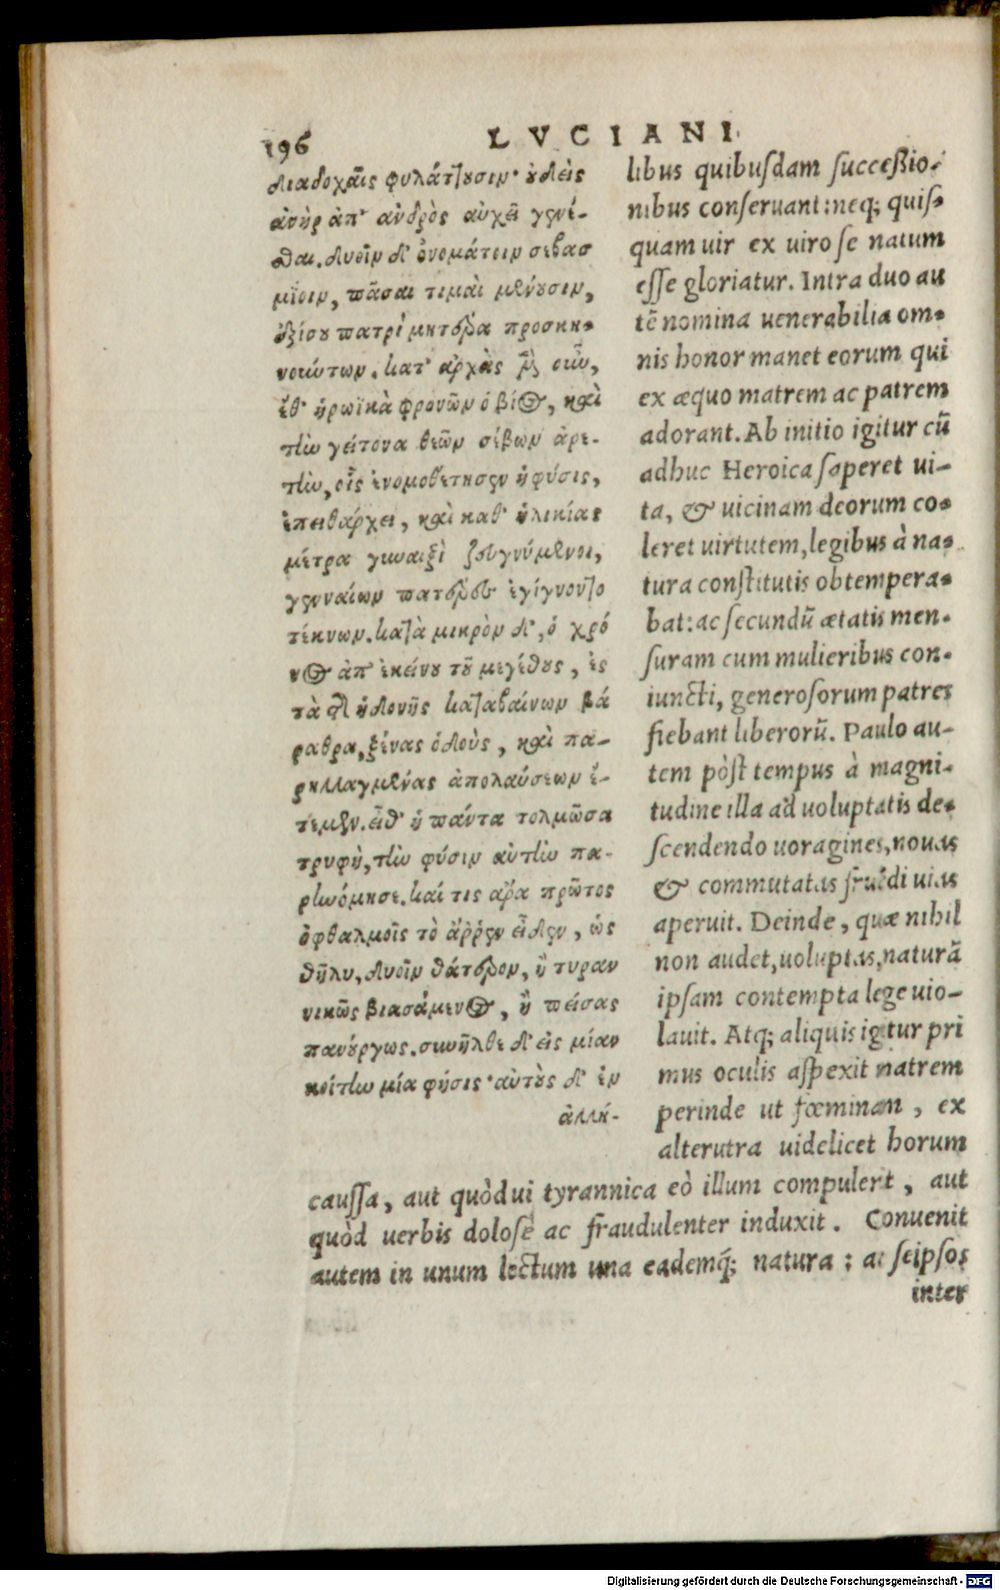 196
LVCIANI
διαδοχαῖς φυλάττουσιν· οὐδεὶς
ἀνὴρ ἀπ' ἀνδρὸς αὐχεῖ γενέ-
σθαι. δυοῖν δ' ὀνομάτοιν σεβασ
μίοιν, πᾶσαι τιμαὶ μένουσιν,
ἐξίσου πατρὶ μητέρα προσκυ-
νούντων. κατ' ἀρχὰς μὲν οὖν,
ἔθ' ἡρωϊκὰ φρονῶν ὁ βίος, καὶ
τὴν γείτονα θεῶν σέβων ἀρε-
τὴν, οἷς ἐνομοθέτησεν ἡ φύσις,
ἐπειθάρχει, καὶ καθ' ἡλικίας
μέτρα γυναιξὶ ζευγνύμενοι,
γενναίων πατέρες ἐγίγνοντο
τέκνων. κατὰ μικρὸν δ', ὁ χρό
νος ἀπ' ἐκείνου τοῦ μεγέθους, ἐς
τὰ τῆς ἡδονῆς καταβαίνων βά
ραθρα, ξένας ὁδοὺς, καὶ πα-
ρηλλαγμένας ἀπολαύσεων ἔ-
τεμεν. εἶθ' ἡ πάντα τολμῶσα
τρυφὴ, τὴν φύσιν αὐτὴν πα-
ρηνόμησε. καί τις ἄρα πρῶτος
ὀφθαλμοῖς τὸ ἄῤῥεν εἶδεν, ὡς
θῆλυ, δυοῖν θάτερον, ἢ τυραν
νικῶς βιασάμενος, ἢ πείσας
πανούργως. συνῆλθε δ' εἰς μίαν
κοίτην μία φύσις· αὐτοὺς δ' ἐν
ἀλλή-
libus quibusdam successio-
nibus conseruant: neq; quis-
quam uir ex uiro se natum
esse gloriatur. Intra duo au
tē nomina uenerabilia om-
nis honor manet eorum qui
ex æquo matrem ac patrem
adorant. Ab initio igitur cū
adhuc Heroica saperet ui-
ta, & uicinam deorum co-
leret uirtutem, legibus à na-
tura constitutis obtempera-
bat: ac secundū ætatis men-
suram cum mulieribus con-
iuncti, generosorum patres
fiebant liberorū. Paulo au-
tem pòst tempus à magni-
tudine illa ad uoluptatis de-
scendendo uoragines, nouas
& commutatas fruēdi uias
aperuit. Deinde, quæ nihil
non audet, uoluptas, naturā
ipsam contempta lege uio-
lauit. Atq; aliquis igitur pri
mus oculis aspexit natrem
perinde ut fœminam, ex
alterutra uidelicet horum
caussa, aut quòd ui tyrannica eò illum compulert, aut
quòd uerbis dolose ac fraudulenter induxit. Conuenit
autem in unum lectum una eademq́; natura: at seipsos
inter
Digitalisierung gefördert durch die Deutsche Forschungsgemeinschaft - DFG